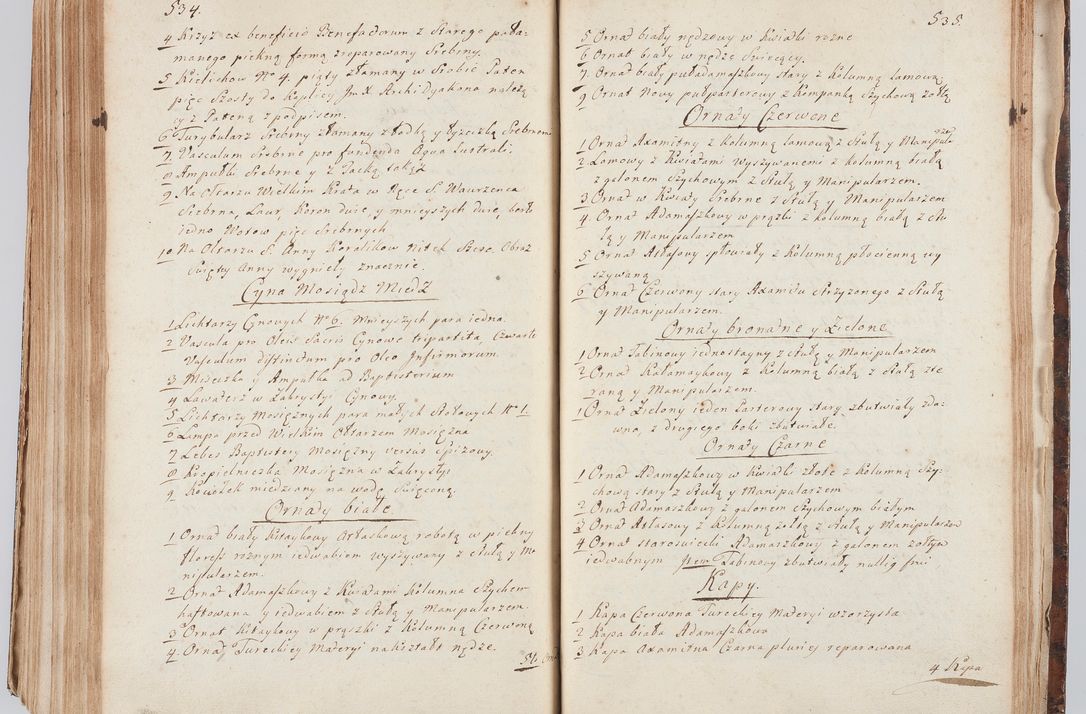 534.
4 Krzyż ex beneficio Benefactorum z Starego poła-
manego piękną formą zreparowany Srebrny.
5 Kielichow No 4. piąty złamany w Srobie Paten
pięc Szosty do Kaplicy JmX Archidyakona należą
cy z Pateną z podpisem.
6 Turybularz Srebrny złamany z łodką y łyżeczką Srebrnem
7 Vasculum Srebrne pro fundenda Aqua Lustrali.
8 Ampułki Srebrne y z Tacką takąż
9 Na Ołtarzu Wielkim Krata w Ręce S. Wawrzenca
Srebrna, Laur, Koron duże, y mnieyszych duże, berło
iedno Wotow pięc Srebrnych
10 Na Ołtarzu S. Anny Koralikow Nitek Szesc. Obraz
Swięty Anny wygnieły znacznie.
Cyna Mosiądz Miedz
1 Lichtarzy Cynowych No 6. Mnieyszych para iedna.
2 Vascula pro Oleis Sacris Cynowe tripartita, Czwarte
Vasculum distinctum pro Oleo Infirmorum.
3 Miseczka y Ampułka ad Baptisterium
4 Lawaterz w Zakrystyi Cynowy.
5 Lichtarzy Mosiężnych para małych Stołowych No 1.
6 Lampa przed Wielkim Ołtarzem Mosiężna
7 Lebes Baptistery Mosiężny versus Spiżowy.
8 Kropielniczka Mosiężna w Zakrystyi
9 Kociołek miedziany na wodę Swięconą.
Ornaty białe.
1 Ornat biały Kitaykowy Atłaskową robotą w piękny
floress roznym iedwabiem wyszywany z stułą y Ma
nipularzem.
2 Ornat Adamaszkowy z Kwiatami Kolumna Szychem
haftowana y iedwabiem z Stułą y Manipularzem.
3 Ornat Kitaykowy w prążki z Kolumną Czerwoną
4 Ornat Tureckiey Materyi nakształt nędze.
5to Orna
535.
5 Ornat biały nędzowy w Kwiatki rozne
6 Ornat biały w nędze Swiecący.
7 Ornat biały puładamaszkowy stary z Kolumną Lamową
9 Ornat Nowy pułparterowy z Kampanką Szychową żołtą
Ornaty Czerwone
1 Ornat Axamitny z Kolumną Lamową z Stułą y Manipula
rzem
2 Lamowy z Kwiatami wyszywanemi z kolumną białą
z galonem Szychowym z Stułą y Manipularzem.
3 Ornat w Kwiaty Srebrne z Stułą y Manipularzem
4 Ornat Adamaszkowy w prążki z kolumną białą z stu
łą y Manipularzem
5 Ornat Atłasowy spłowiały z Kolumną płocienną wy
szywaną
6 Ornat Czerwony stary Axamitu strzyżonego z Stułą
y Manipularzem.
Ornaty bronatne y Zielone
1 Ornat Tabinowy iednostayny z stułą y Manipularzem
2 Ornat Kałamaykowy z Kolumną białą z stułą zte
raną y Manipularzem.
1 Ornat Zielony ieden Parterowy stary zbutwiały zda-
wno, z drugiego boki zbutwiałe.
Ornaty Czarne
1 Ornat Adamaszkowy w Kwiatki złote z kolumną Szy-
chową stary z stułą y Manipularzem
2 Ornat Adamaszkowy z galonem Szychowym białym
3 Ornat Atłasowy z kolumną żołtą z stułą y Manipularzem
4 Ornat staroswiecki Adamaszkowy z galonem żołtym
iedwabnym Item Tabinowy zbutwiały nullig
Kapy.
1 Kapa Czerwona Tureckiey Materyi wzorzysta
2 Kapa biała Adamaszkowa
3 Kapa Axamitna Czarna pluniey reparowana
4 Kapa